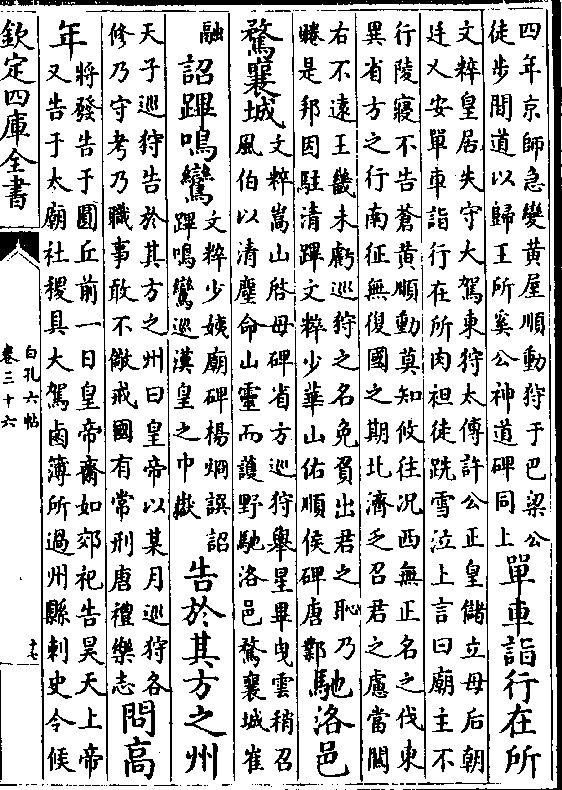 四年京師急變黄屋順動狩于巴梁公
徒步間道以歸王所奚公神道碑同上
單車詣行在所
文粹皇居失守大駕東狩太傅許公正皇儲立母后朝
廷乂安單車詣行在所肉袒徒跣雪泣上言曰廟主不
行陵寢不告蒼黄順動莫知攸往况西無正名之伐東
異省方之行南征無復國之期北濟乏召君之慮當閫
右不遠王畿未虧巡狩之名免負出君之恥乃
睠是邦因駐清蹕文粹少華山佑順侯碑唐鄭
馳洛邑
騖襄城
文粹嵩山啓母碑省方巡狩舉星畢曳雲稍召
風伯以清塵命山靈而護野馳洛邑騖襄城崔
融
詔蹕鳴鸞
文粹少姨廟碑楊烱譔詔
蹕鳴鸞巡漢皇之巾嶽
告於其方之州
天子巡狩告於其方之州曰皇帝以某月巡狩各
修乃守考乃職事敢不儆戒國有常刑唐禮樂志
問高
年
將發告于圜丘前一日皇帝齋如郊祀告昊天上帝
又告于太廟社稷具大駕鹵簿所過州縣刺史令候
欽定四庫全書
白孔六帖
卷三十六
十七